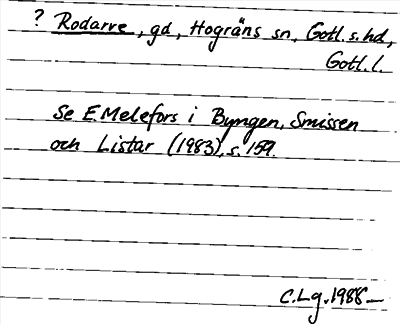 ? Rodarve, gd, Hogräns sn, Gotl. s. hd,
Gotl. l.
Se E. Melefors i Byngen, Smissen
och Listar (1983), s. 159.
C. Lg. 1988